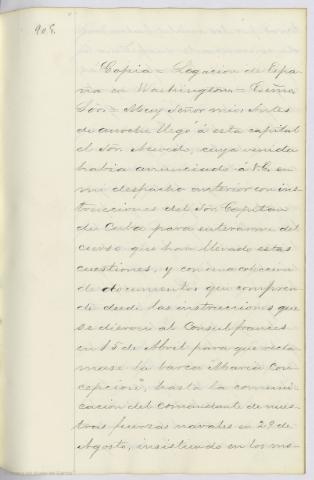 Copia = Legacion de Espa-
ña en Washington = Excmo
Sor. = Muy Señor mio: Antes
de anoche llegó á esta capital
el Sor. cuya venida
habia anunciado á V.E. en
mi despacho anterior con ins-
trucciones del Sor. Capitan
de Cuba para enterarme del
curso que han llevado estas
cuestiones, y con una coleccion
de documentos que compren-
de desde las instrucciones que
se dieron al Consul frances
en 15 de Abril para que recla-
mase la barca "Maria Con-
cepcion", hasta la comuni-
cacion del comandante de nues-
tras fuerzas navales en 29 de
Agosto, insistiendo en los mo-